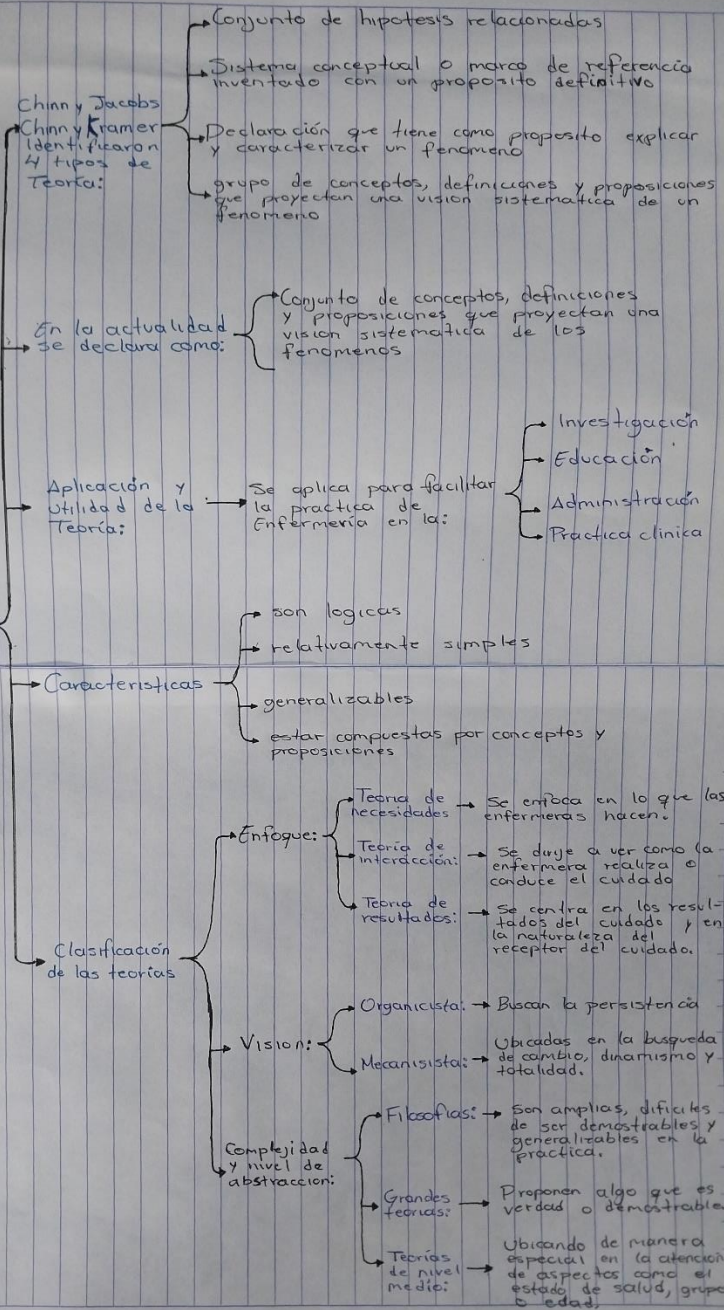 Chinn y Jacobs
Chinn y Kramer
Identificaron
4 tipos de
Teoría:
Conjunto de hipotesis relacionadas
Sistema conceptual o marco de referencia
inventado con un proposito definitivo
Declaración que tiene como proposito explicar
y caracterizar un fenomeno
grupo de conceptos, definiciones y proposiciones
que proyectan una vision sistematica de un
fenomeno
En la actualidad
se declara como:
Conjunto de conceptos, definiciones
y proposiciones que proyectan una
vision sistematica de los
fenomenos
Aplicación y
utilidad de la
Teoría:
Se aplica para facilitar
la practica de
Enfermería en la:
Investigación
Educación
Administración
Practica clinica
Caracteristicas
son logicas
relativamente simples
generalizables
estar compuestas por conceptos y
proposiciones
Clasificación
de las teorias
Enfoque:
Teoria de
necesidades
Se enfoca en lo que las
enfermeras hacen.
Teoría de
interacción:
Se dirije a ver como la
enfermera realiza o
conduce el cuidado
Teoria de
resultados:
Se centra en los resul-
tados del cuidado y en
la naturaleza del
receptor del cuidado.
Vision:
Organicista:
Buscan la persistencia
Mecanisista:
Ubicadas en la busqueda
de cambio, dinamismo y
totalidad.
Complejidad
y nivel de
abstraccion:
Filosofias:
Son amplias, dificiles
de ser demostrables y
generalizables en la
practica.
Grandes
teorias:
Proponen algo que es
verdad o demostrable.
Teorías
de nivel
medio:
Ubicando de manera
especial en la atencion
de aspectos como el
estado de salud, grupo
o edad.